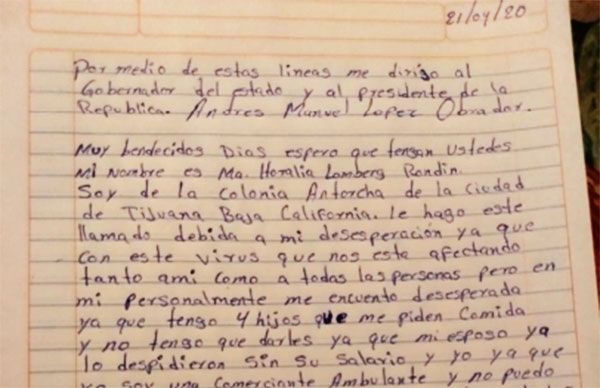 21/04/20
Por medio de estas lineas me dirigo al
Gobernador del estado y al presidente de la
Republica. Andres Manuel Lopez Obrador.
Muy bendecidos Dias espero que tengan Ustedes
Mi Nombre es Ma. Horalia Lomberg Rondin.
Soy de la Colonia Antorcha de la Ciudad
de Tijuana Baja California. le hago este
llamado debida a mi desesperación ya que
con este virus que nos esta afectando
tanto ami como a todas las personas pero en
mi personalmente me encuento desesperada
ya que tengo 4 hijos que me piden Comida
y no tengo que darles ya que mi esposo ya
lo despidieron sin su salario y yo ya que
yo soy una Comerciante Ambulante y no puedo